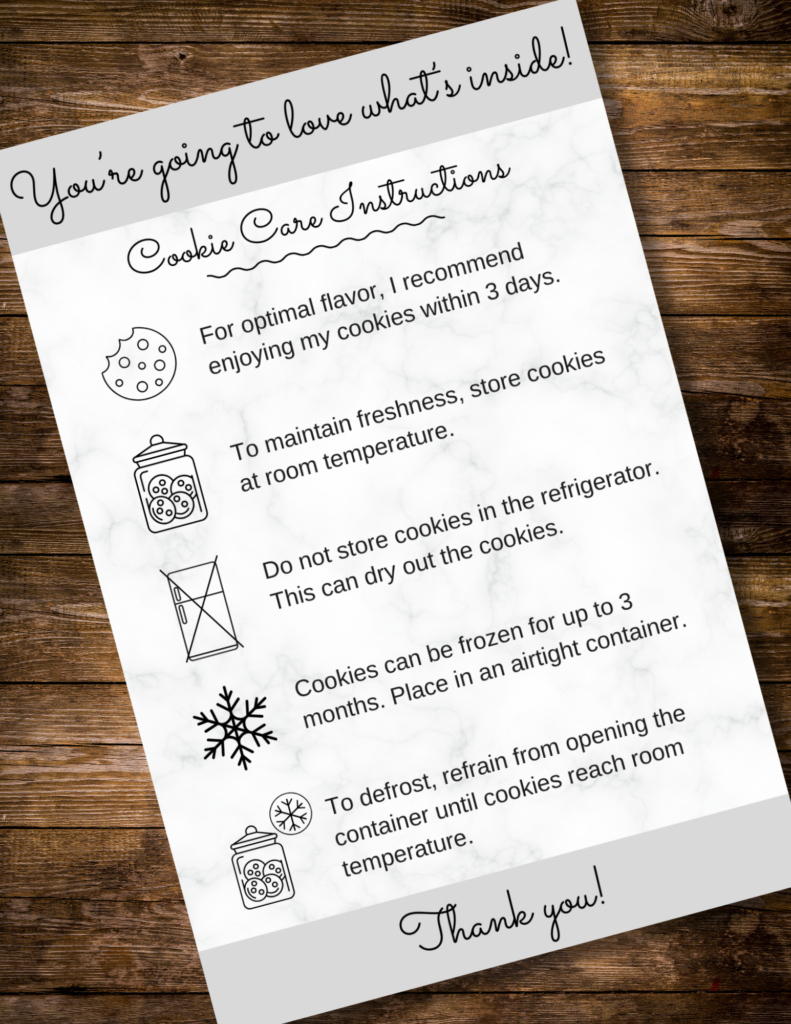 You're going to love what's inside!
Cookie Care Instructions
For optimal flavor, I recommend
enjoying my cookies within 3 days.
To maintain freshness, store cookies
at room temperature.
Do not store cookies in the refrigerator.
This can dry out the cookies.
Cookies can be frozen for up to 3
months. Place in an airtight container.
To defrost, refrain from opening the
container until cookies reach room
temperature.
Thank you!